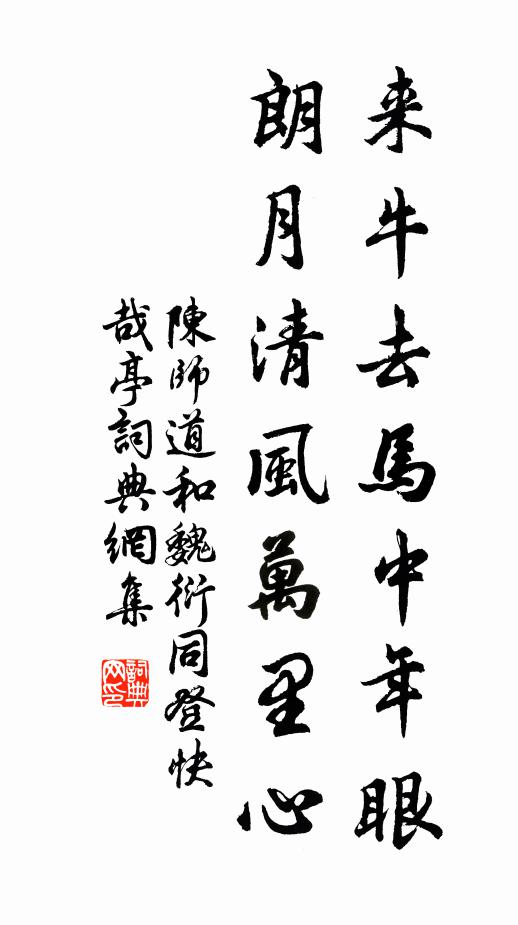 来牛去馬中年眼
朗月清風萬里心
陳師道和魏衍同登快
哉亭詞典網集
詞典
网印